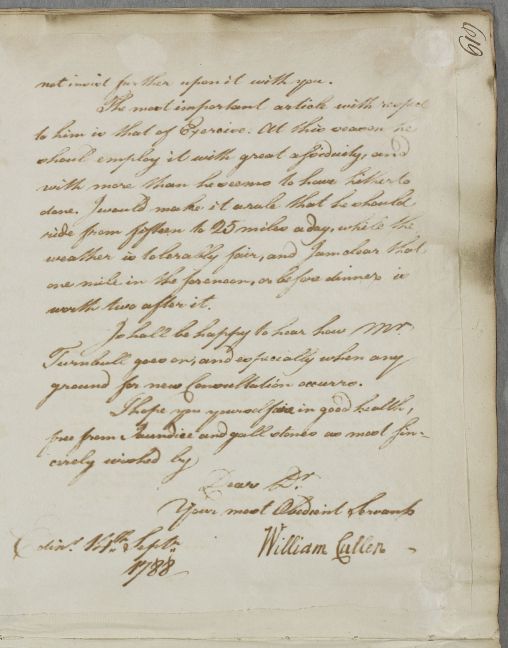 619
not insist further upon it with you.
The most important article with respect
to him is that of Exercise. At this season he
should employ it with great assiduity, and
with more than he seems to have hitherto
done. I would make it a rule that he should
ride from fifteen to 25 miles a day, while the
weather is tolerably fair, and I am clear that
one mile in the forenoon, or before dinner is
worth two after it.
I shall be happy to hear how Mr.
Turnbull goes on, and especially when any
ground for new Consultation occurrs.
I hope you yourself are in good health,
free from Jaundice and gall stones as most sin-
cerely wished by
Dear Dr.
Your most Obedient Servant
Edinr. Septr. William Cullen
1788